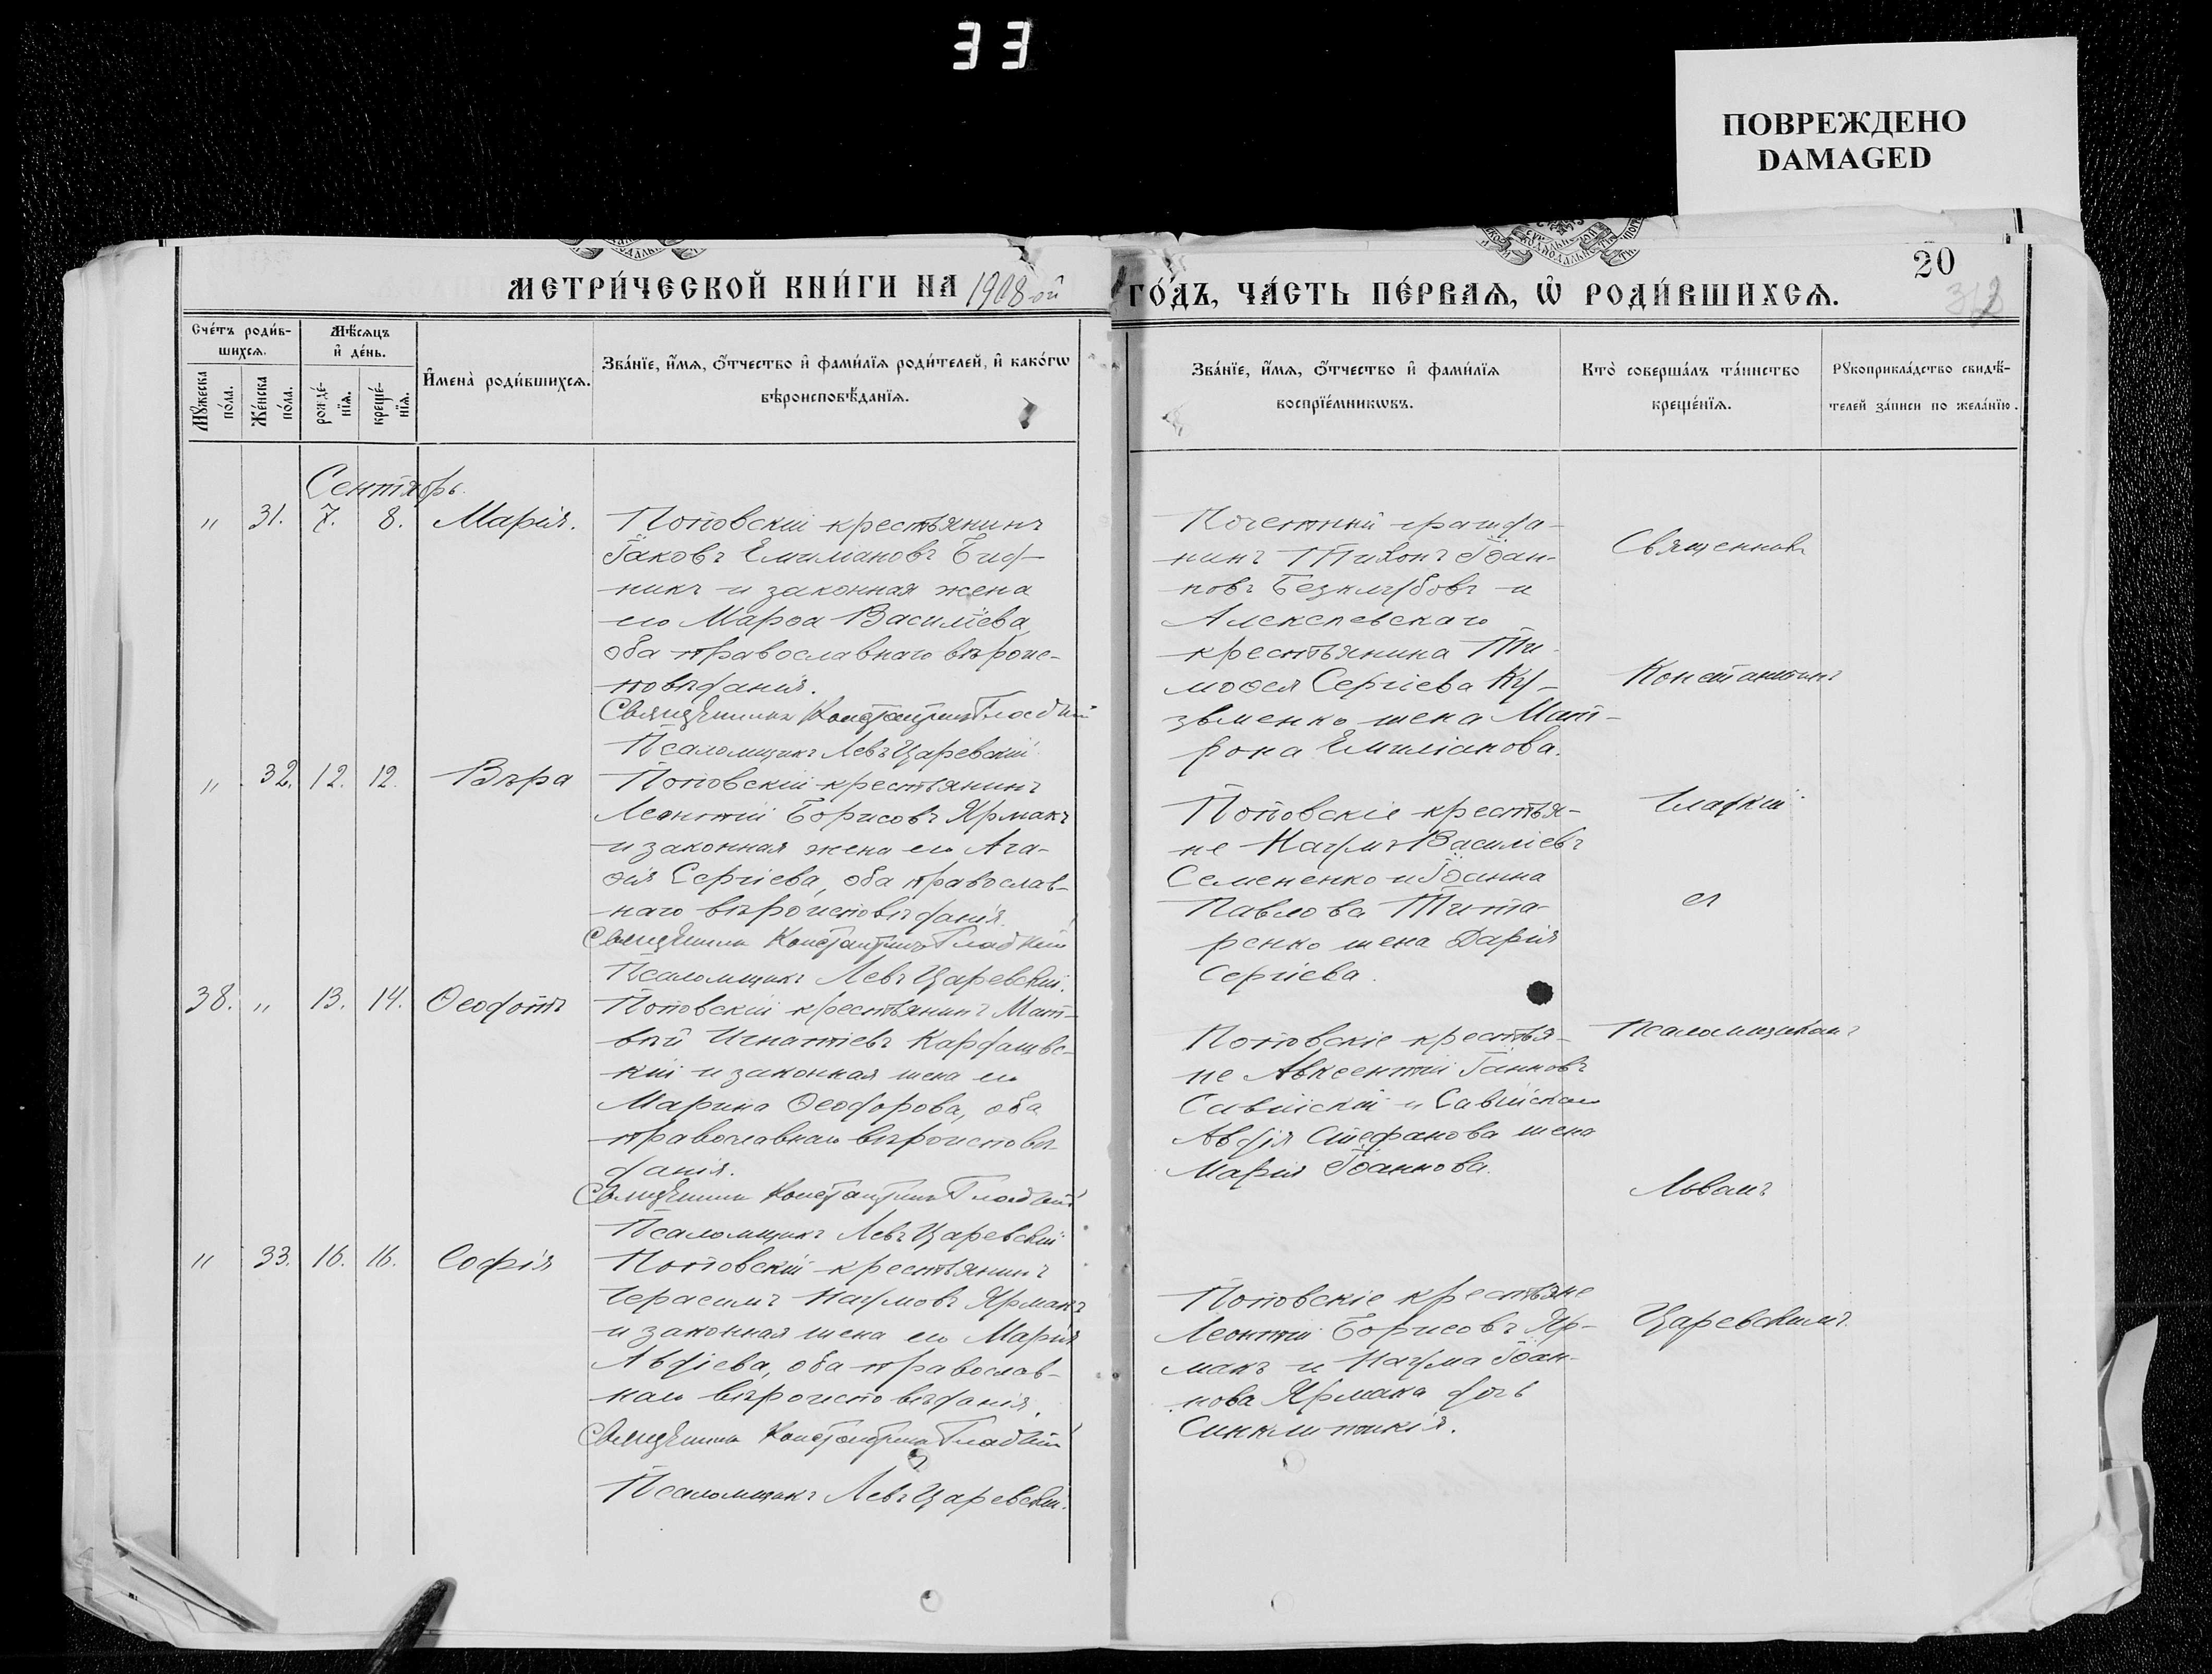 33
ПОВРЕЖДЕНО
DAMAGED
МЕТРИ́ЧЕСКОЙ КНИ́ГИ НА 1908-ой
ГО́ДЪ, ЧА́СТЬ ПЕ́РВАѦ, Ѡ҆ РОДИ́ВШИХСѦ.
20
Сче́тъ роди́в-
шихсѧ.
Мѣ́сѧцъ
и҆ де́нь.
Мꙋ́жеска
по́ла.
Же́нска
по́ла.
рожде́-
нїѧ.
креще́-
нїѧ.
И҆мена̀ роди́вшихсѧ.
Зва́нїе, и҆́мѧ, ѻ҆́тчество и҆ фами́лїѧ роди́телей, и҆ како́гѡ
вѣроисповѣ́данїѧ.
Зва́нїе, и҆́мѧ, ѻ҆́тчество и҆ фами́лїѧ
воспрїе́мникѡвъ.
Кто̀ соверша́лъ та́инство
креще́нїѧ.
Рꙋкоприкла́дство свидѣ́-
телей за́писи по жела́нїю.
Сентябрь.
" 31. 7. 8. Марія.
Поповскій крестьянинъ
Іаковъ Емиліановъ Бид-
никъ и законная жена
его Марѳа Василіева,
оба православнаго вѣроис-
повѣданія.
Священникъ Константинъ Гладкій
Псаломщикъ Левъ Царевскій
Почетный гражда-
нинъ Тихонъ Іоан-
новъ Безклубовъ и
Алексеевскаго
крестьянина Ти-
моѳея Сергіева Ку-
зьменко жена Мат-
рона Емиліанова.
Священникъ
Константинъ
Гладкій
съ
Псаломщикомъ
Львомъ
Царевскимъ.
" 32. 12. 12. Вѣра
Поповскій крестьянинъ
Леонтій Борисовъ Ярмакъ
и законная жена его Ага-
ѳія Сергіева, оба православ-
наго вѣроисповѣданія.
Священникъ Константинъ Гладкій
Псаломщикъ Левъ Царевскій.
Поповскіе крестья-
не Наумъ Василіевъ
Семененко и Іоанна
Павлова Тита-
ренко жена Дарія
Сергіева.
38. " 13. 14. Ѳеодотъ
Поповскій крестьянинъ Мат-
вѣй Игнатіевъ Кардашевс-
кій и законная жена его
Марина Ѳеодорова, оба
православнаго вѣроисповѣ-
данія.
Священникъ Константинъ Гладкій
Псаломщикъ Левъ Царевскій
Поповскіе крестья-
не Авксентій Іоанновъ
Савійскій и Савійскаго
Авдія Стефанова жена
Марія Іоаннова.
" 33. 16. 16. Софія
Поповскій крестьянинъ
Герасимъ Наумовъ Ярмакъ
и законная жена его Марія
Авдіева, оба православ-
наго вѣроисповѣданія.
Священникъ Константинъ Гладкій
Псаломщикъ Левъ Царевскій.
Поповскіе крестьяне
Леонтій Борисовъ Яр-
макъ и Наума Іоан-
нова Ярмака дочь
Синклитикія.